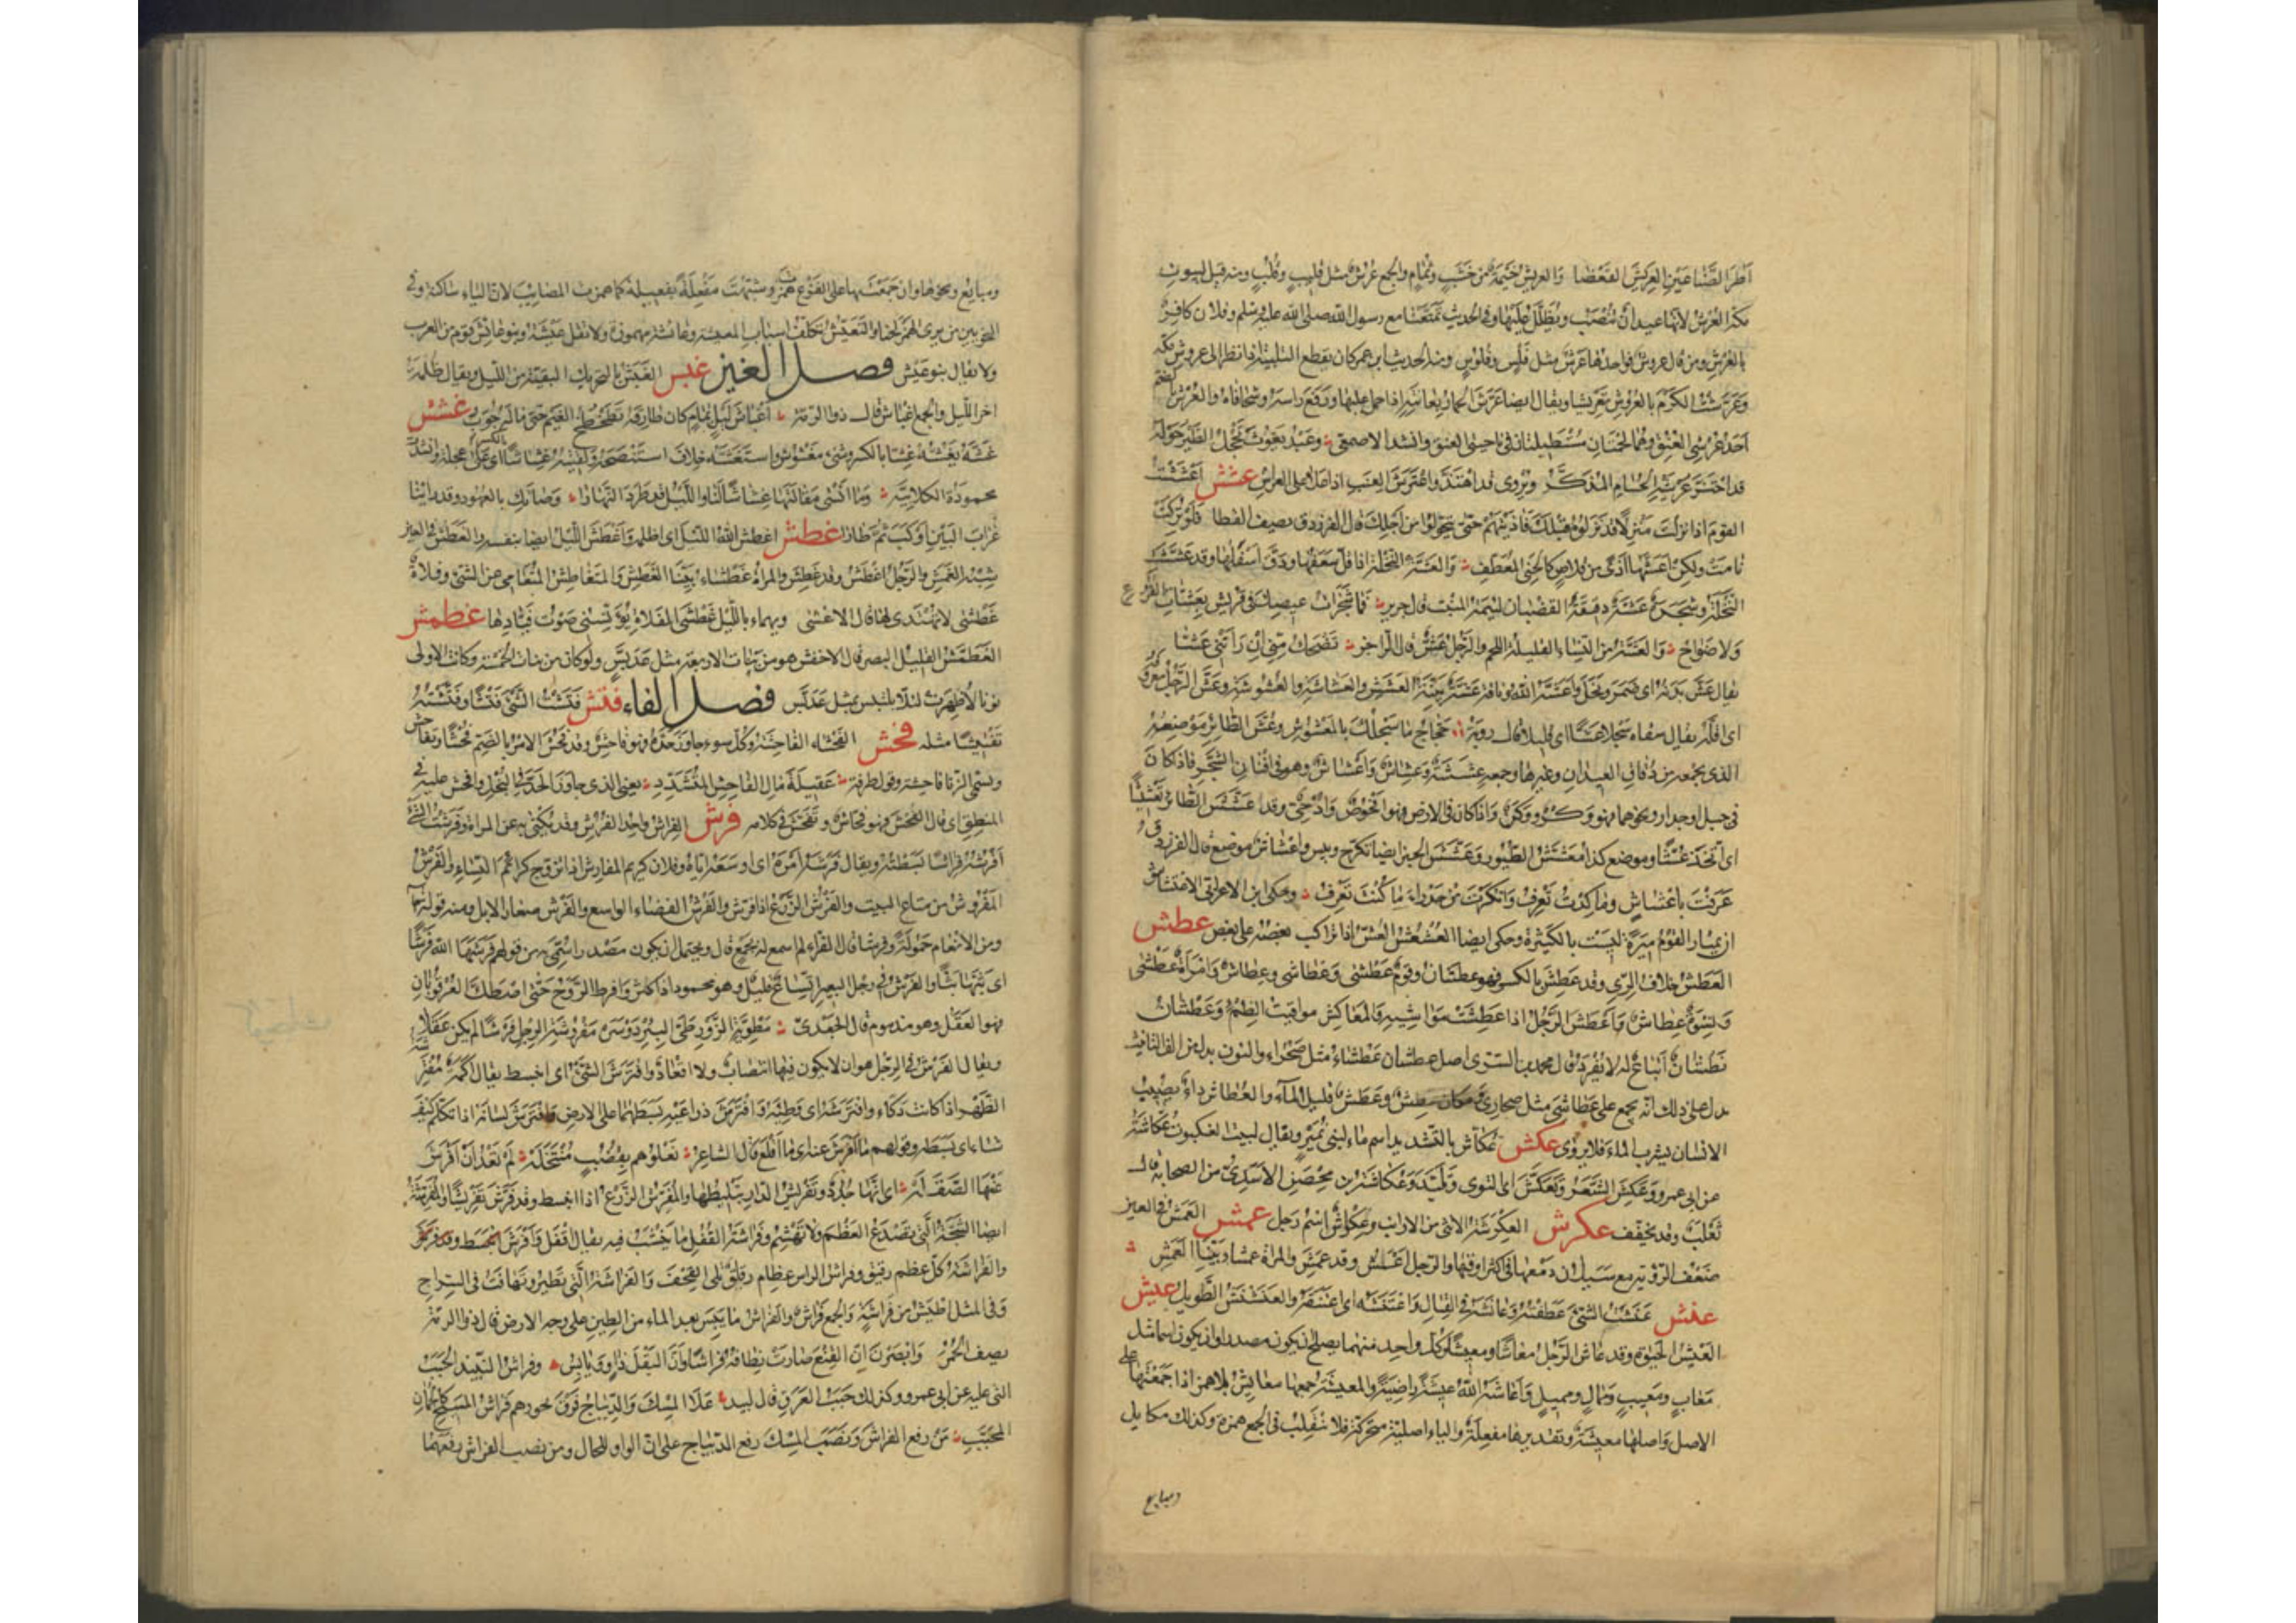 أطر الصناعين العريش المقعضا والعريش خيمة من خشب وثمام والجمع عرش مثل قليب وقلب ومنه قيل لبيوت
مكة العرش لأنها عيدان تنصب ويظلل عليها وفي الحديث تمتعنا مع رسول الله صلى الله عليه وسلم وفلان كافر
بالعرش ومن قال عروش فواحدها عرش مثل فلس وفلوس ومنه الحديث ابن عمر كان يقطع التلبية اذا نظر الى عروش مكة
وعرشت الكرم بالعروش تعريشا ويقال ايضا عرش الحمار بعانته اذا حمل عليها ورفع رأسه وشحا فاه والعرش بالضم
احد عرشي العنق وهما لحمتان مستطيلتان في ناحيتي العنق وانشد الاصمعي وعبد يغوث تحجل الطير حوله
قد احتز عرشيه الحسام المذكر ويروى قد اهتذ واعترش العنب اذا علا على العراش عشش أعششت
القوم اذا نزلت منزلا قد نزلوه قبلك فآذيتهم حتى يتحولوا من أجلك قال الفرزدق يصف القطا فلو تركت
نامت ولكن أعشها أذى من قلاص كالحني المعطف والعشة النخلة اذا قل سعفها ودق أسفلها وقد عششت
النخلة وشجرة عشة دقيقة القضبان لئيمة المنبت قال جرير فما شجرات عيصك في قريش بعشات الفروع
ولا ضواح والعشة من النساء القليلة اللحم والرجل عش قال الراجز تضحك مني أن رأتني عشا
يقال عش بدنه اي ضمر ونحل وأعشه الله وناقة عشة بينة العشش والعشاشة والعشوشة وعش الرجل معروفه
اي اقله يقال سقاه سجلا عشا اي قليلا قال رؤبة حجاج ما سجلك بالمعشوش وعش الطائر موضعه
الذي يجمعه من دقاق العيدان وغيرها وجمعه عششة وعشاش وأعشاش وهو في افنان الشجر فاذا كان
في جبل او جدار ونحوهما فهو وكر ووكن واذا كان في الارض فهو افحوص وادحي وقد عشش الطائر تعشيشا
اي اتخذ عشا وموضع كذا معشش الطيور وعشش الخبز ايضا تكرج ويبس واعشاش موضع قال الفرزدق
عزفت بأعشاش وما كدت تعزف وانكرت من حدراء ما كنت تعرف وحكى ابن الاعرابي الاعتشاش
ان يمتار القوم ميرة ليست بالكثيرة وحكى ايضا العشعش العش اذا تراكب بعضه على بعض عطش
العطش خلاف الري وقد عطش بالكسر فهو عطشان وقوم عطشى وعطاشى وعطاش وامرأة عطشى
ونسوة عطاش وأعطش الرجل اذا عطشت مواشيه والمعاطش مواقيت الظمء وعطشان
نطشان اتباع له لا يفرد قال محمد بن السري اصل عطشان عطشاء مثل صحراء والنون بدل من الف التأنيث
يدل على ذلك انه يجمع على عطاشى مثل صحارى ومكان عطش وعطش قليل الماء والعطاش داء يصيب
الانسان يشرب الماء فلا يروى عكش عكاش بالتشديد اسم ماء لبني نمير ويقال لبيت العنكبوت عكاشة
عن ابي عمرو وعكش الشعر وتعكش اي التوى وتلبد وعكاشة بن محصن الأسدي من الصحابة قال
ثعلب وقد يخفف عكرش العكرشة الانثى من الارانب وعكراش اسم رجل عمش العمش في العين
ضعف الرؤية مع سيلان دمعها في اكثر اوقاتها والرجل اعمش وقد عمش والمرأة عمشاء بينا العمش
عنش عنشت الشئ عطفته وعانشه في القتال واعتنشه اي اعتنقه والعنشنش الطويل عيش
العيش الحيوة وقد عاش الرجل معاشا ومعيشا وكل واحد منهما يصلح ان يكون مصدرا وان يكون اسما مثل
معاب ومعيب وممال ومميل وأعاشه الله عيشة راضية والمعيشة جمعها معايش بلا همز اذا جمعتها على
الاصل واصلها معيشة وتقديرها مفعلة والياء اصلية متحركة فلا تنقلب في الجمع همزة وكذلك مكايل
ومبايع
ومبايع ونحوها وان جمعتها على الفرع همزت وشبهت مفعلة بفعيلة كما همزت المصائب لان الياء ساكنة وفي
النحويين من يرى الهمز لحنا والتعيش تكلف اسباب المعيشة وعائشة مهموزة ولا تقل عيشة وبنو عائش قوم من العرب
ولا يقال بنو عيش فصل الغين غبش الغبش بالتحريك البقية من الليل ويقال ظلمة
اخر الليل والجمع اغباش قال ذو الرمة أغباش ليل تمام كان طارقه تطخطخ الغيم حتى ماله جوب غشش
غشه يغشه غشا بالكسر وشئ مغشوش واستغشه خلاف استنصحه ولقيته غشاشا بالكسر اي على عجلة وانشدت
محمودة الكلابية وما أنسى مقالتها غشاشا لنا والليل قد طرد النهارا وصاتك بالعهود وقد رأينا
غراب البين أوكب ثم طارا غطش اغطش الله الليل اي اظلمه وأغطش الليل ايضا بنفسه والغطش في العين
شبه العمش والرجل اغطش وقد غطش والمرأة غطشاء بينا الغطش والمتغاطش المتعامي عن الشئ وفلاة
غطشى لا يهتدى لها قال الاعشى ويهماء بالليل غطشى الفلاة يؤنسني صوت فيادها غطمش
الغطمش الكليل البصر قال الاخفش هو من بنات الاربعة مثل عدبس ولو كان من بنات الخمسة وكانت الاولى
نونا لأظهرت لئلا يلتبس بمثل عدبس فصل الفاء فتش فتشت الشئ فتشا وفتشته
تفتيشا مثله فحش الفحشاء الفاحشة وكل سوء جاوز حده فهو فاحش وقد فحش الامر بالضم فحشا وتفاحش
وتسمى الزنا فاحشة وقول طرفة عقيلة مال الفاحش المتشدد يعني الذي جاوز الحد في البخل وافحش عليه في
المنطق اي قال الفحش فهو فحاش وتفحش في كلامه فرش الفراش واحد الفرش وقد يكنى به عن المرأة وفرشت الشئ
أفرشه فراشا بسطته ويقال فرشه أمره اي اوسعه اياه وفلان كريم المفارش اذا تزوج كرائم النساء والفرش
المفروش من متاع البيت والفرش الزرع اذا فرش والفرش الفضاء الواسع والفرش صغار الابل ومنه قوله تعالى
ومن الانعام حمولة وفرشا قال الفراء لم اسمع له بجمع قال ويحتمل ان يكون مصدرا سمي به من قولهم فرشها الله فرشا
اي بثها بثا والفرش في رجل البعير اتساع قليل وهو محمود اذا كثر وافرط الروح حتى اصطك العرقوبان
فهو العقل وهو مذموم قال الجعدي مطوية الزور طي البئر دوسرة مفروشة الرجل فرشا لم يكن عقلا
ويقال الفرش في الرجل هو ان لا يكون فيها انتصاب ولا اقعاد وافترش الشئ اي انبسط يقال اكمة مفترشة
الظهر اذا كانت دكاء وافترشه اي وطئه وافترش ذراعيه بسطهما على الارض وافترش لسانه اذا تكلم كيف
شاء اي بسطه وقولهم ما أفرش عنه اي ما أقلع قال الشاعر نعلوهم بقضب منتخله لم تعد أن أفرش
عنها الصقله اي انها جدد وتفريش الدار تبليطها والمفرش الزرع اذا انبسط وقد فرش تفريشا والمفرشة
ايضا الشجة التي تصدع العظم ولا تهشم وفراشة القفل ما ينشب فيه يقال اقفل وأفرش
والفراشة كل عظم رقيق وفراش الراس عظام رقاق تلي القحف والفراشة التي تطير وتهافت في السراج
وفي المثل اطيش من فراشة والجمع فراش والفراش ما يبس بعد الماء من الطين على وجه الارض قال ذو الرمة
يصف الحمر وأبصرن ان القنع صارت نطافه فراشا وأن البقل ذاو ويابس وفراش النبيذ الحبب
التي عليه عن ابي عمرو وكذلك حبب العرق قال لبيد علا المسك والديباج فوق نحورهم فراش المسيح كالجمان
المحبب من رفع الفراش ونصب المسك رفع الديباج على ان الواو للحال ومن نصب الفراش رفعهما